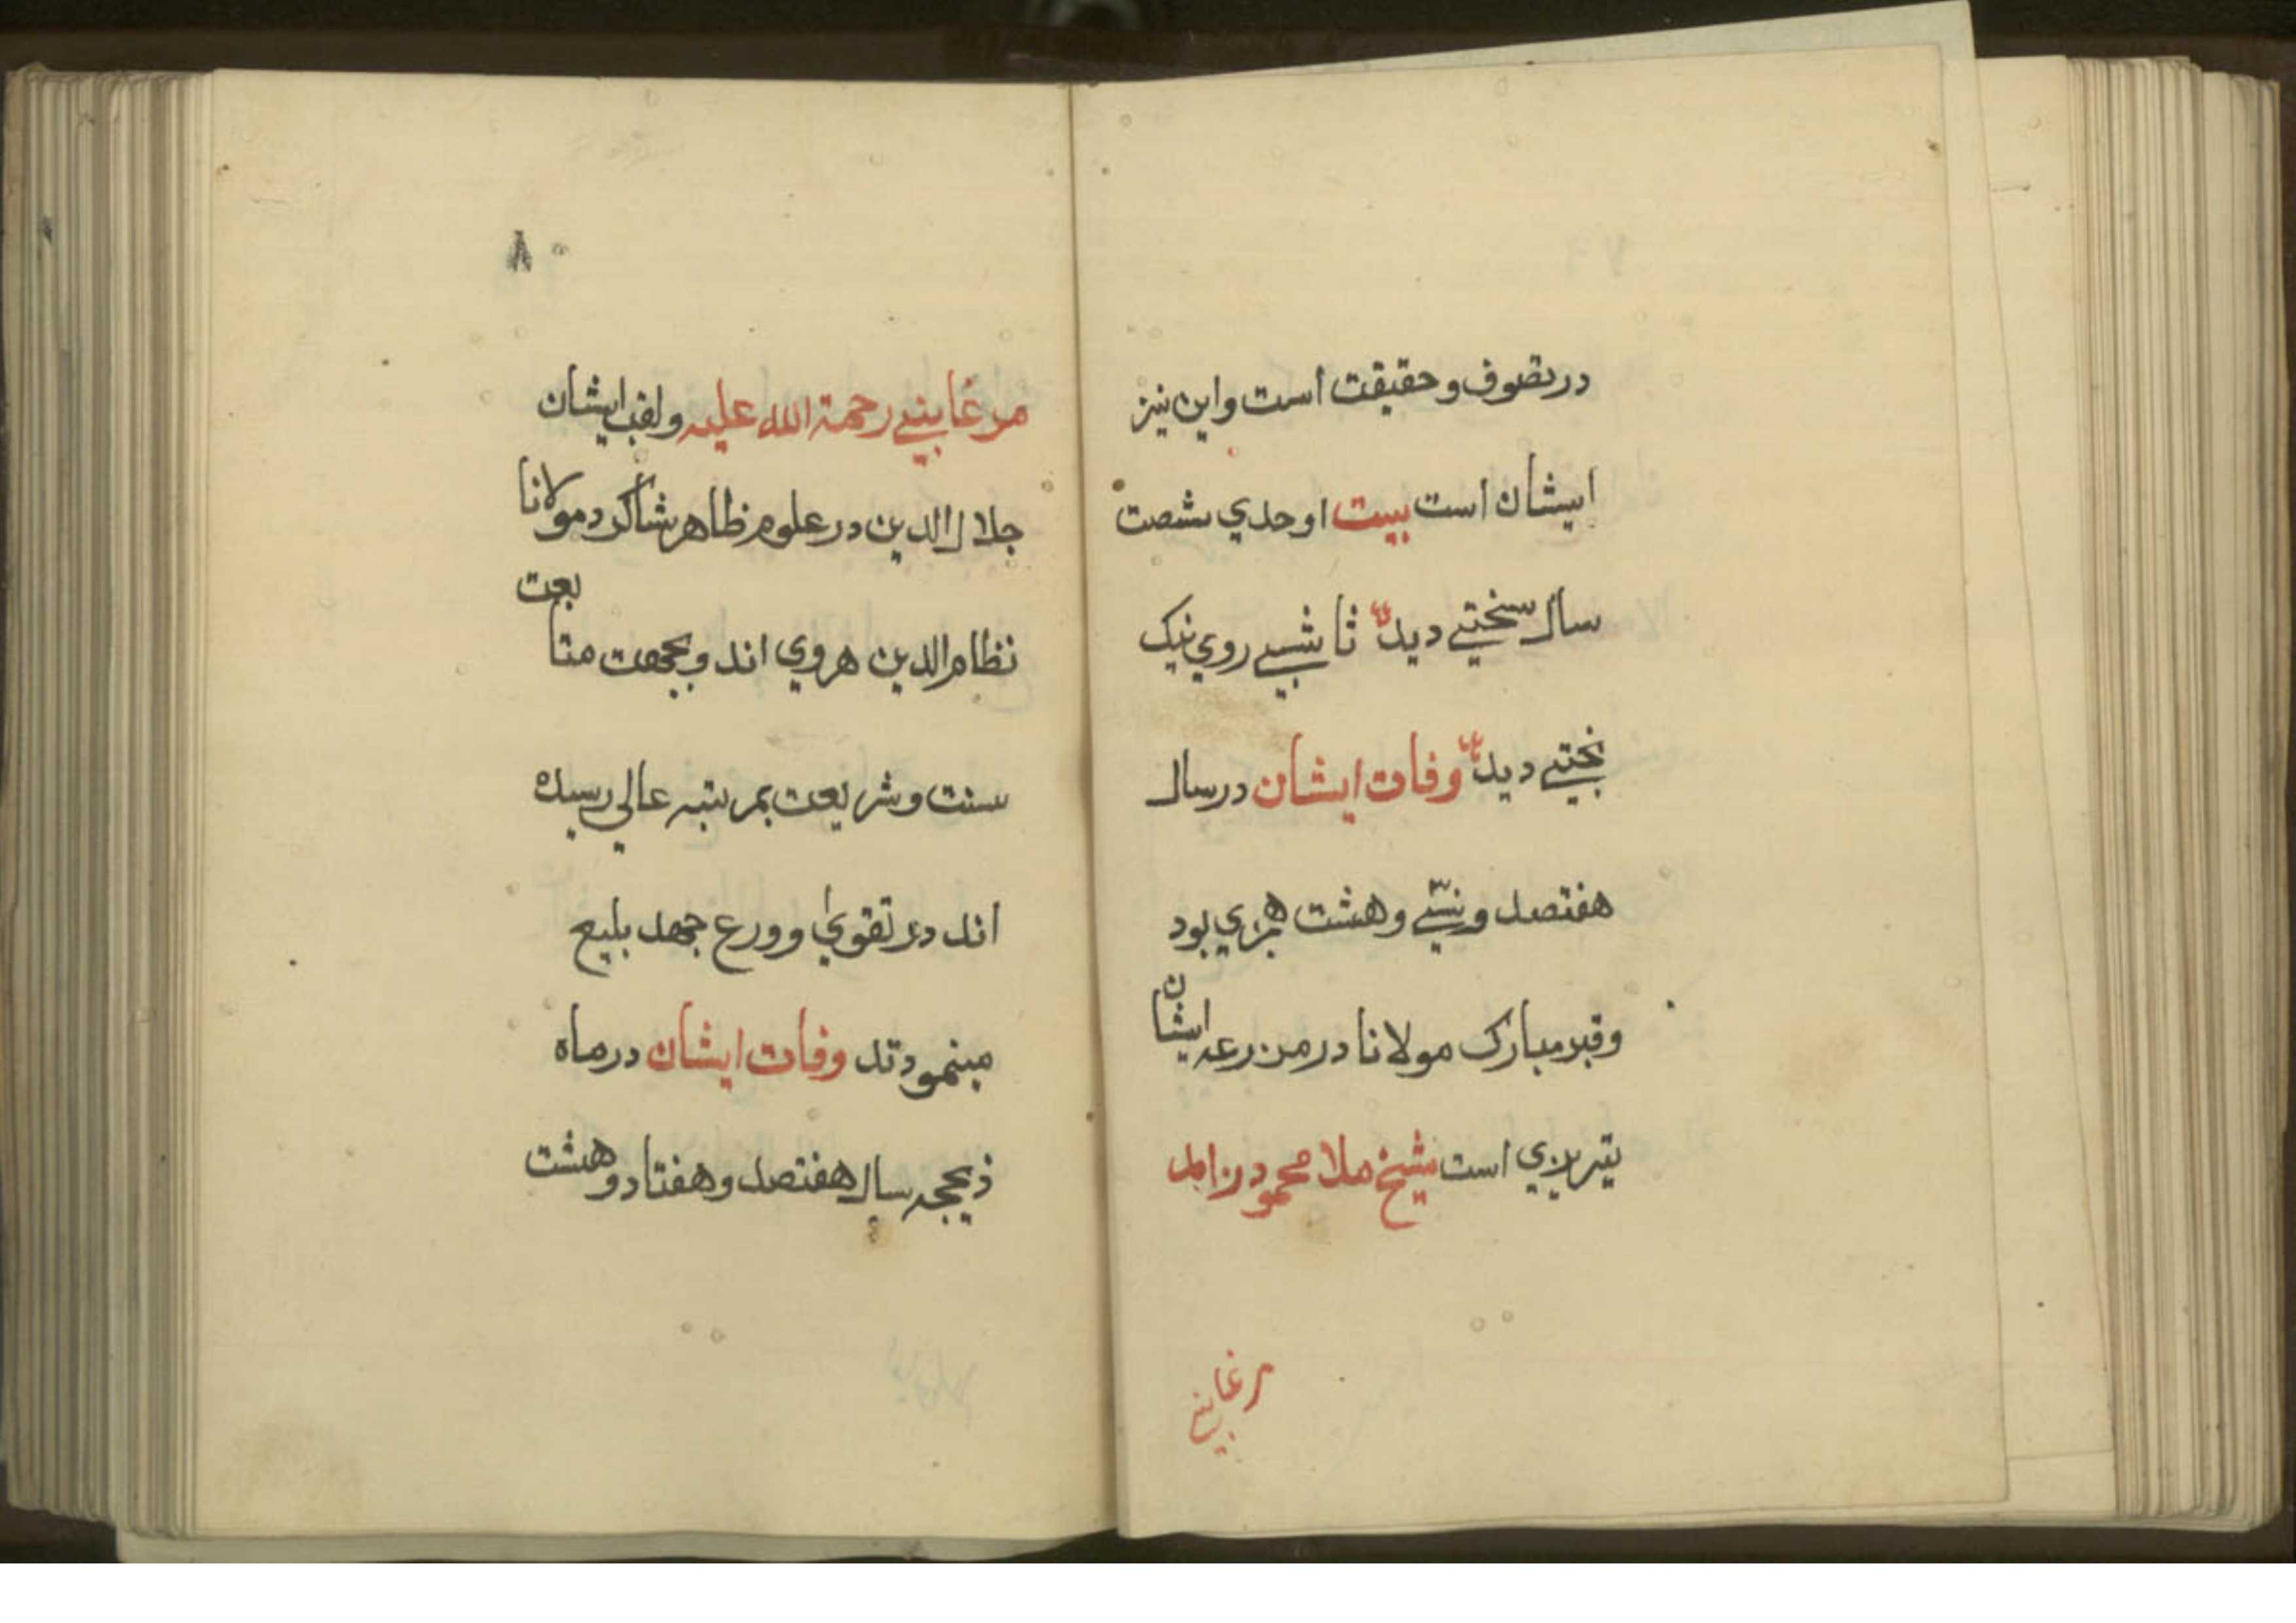 در تصوف و حقیقت است و این نیز
ایشان است بیت اوحدي شصت
سال سختیے دید تا شبیے روي نیک
بختیے دید وفات ایشان در سال
هفتصد و سیے و هشت هجري بود
و قبر مبارک مولانا در مزرعه ایشان
تبریزي است شیخ ملا محمود زاهد
مرغابیے
۸۰
مرغابیے رحمة الله علیه و لقب ایشان
جلال الدین در علوم ظاهر شاگرد مولانا
نظام الدین هروي اند و بجهت متابعت
سنت و شریعت بمرتبه عالي رسیده
اند در تقوي و ورع جهد بلیغ
مینمودند وفات ایشان در ماه
ذیحجه سال هفتصد و هفتاد و هشت